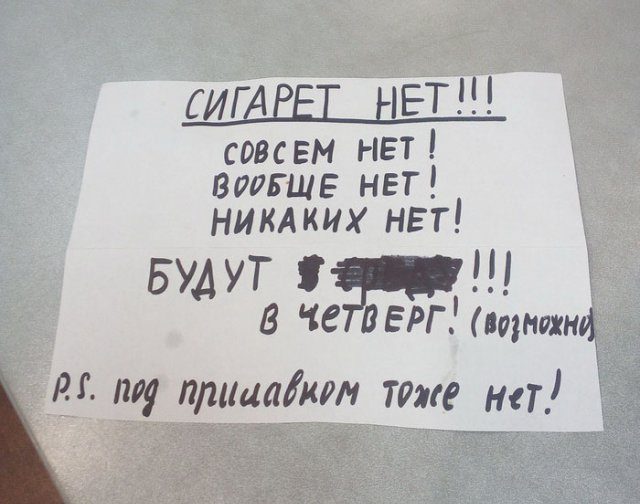 СИГАРЕТ НЕТ!!!
СОВСЕМ НЕТ!
ВООБЩЕ НЕТ!
НИКАКИХ НЕТ!
БУДУТ !!!
В ЧЕТВЕРГ! (возможно)
P.S. под прилавком тоже нет!